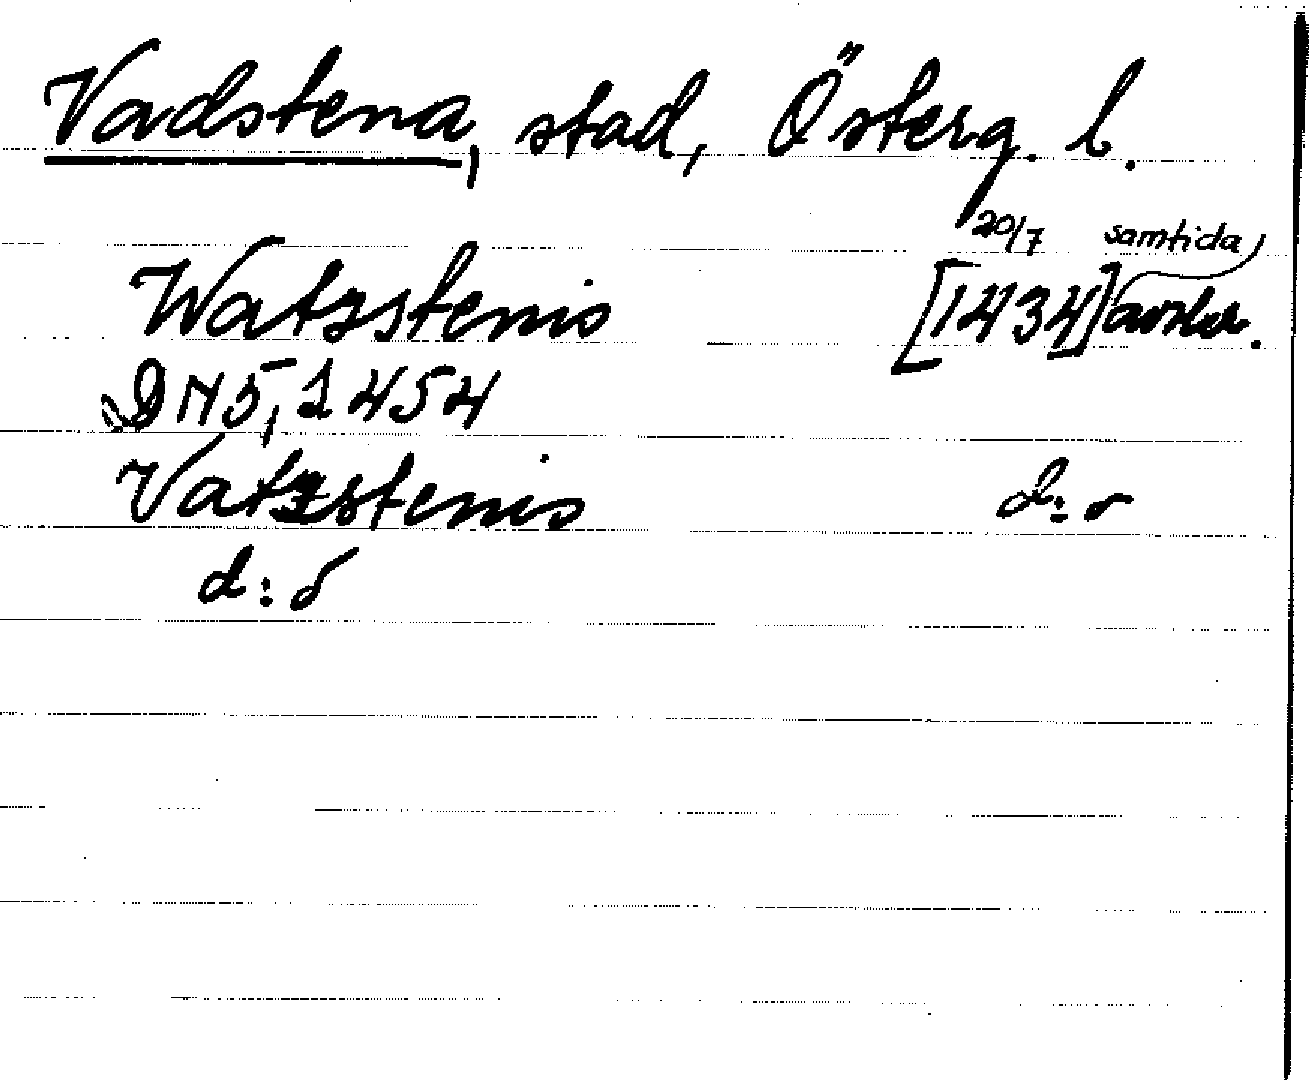 Vadstena, stad, Österg. l.
Watzstenis [1434] 20/7 samtida avskr.
DN 5, 1 454
Vatzstenis d:o
d:o